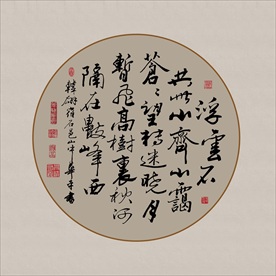 浮雲不
共此山齊山靄
蒼〻望轉迷曉月
暫飛高樹裏秋河
隔在數峰西
韓翃宿石邑山中